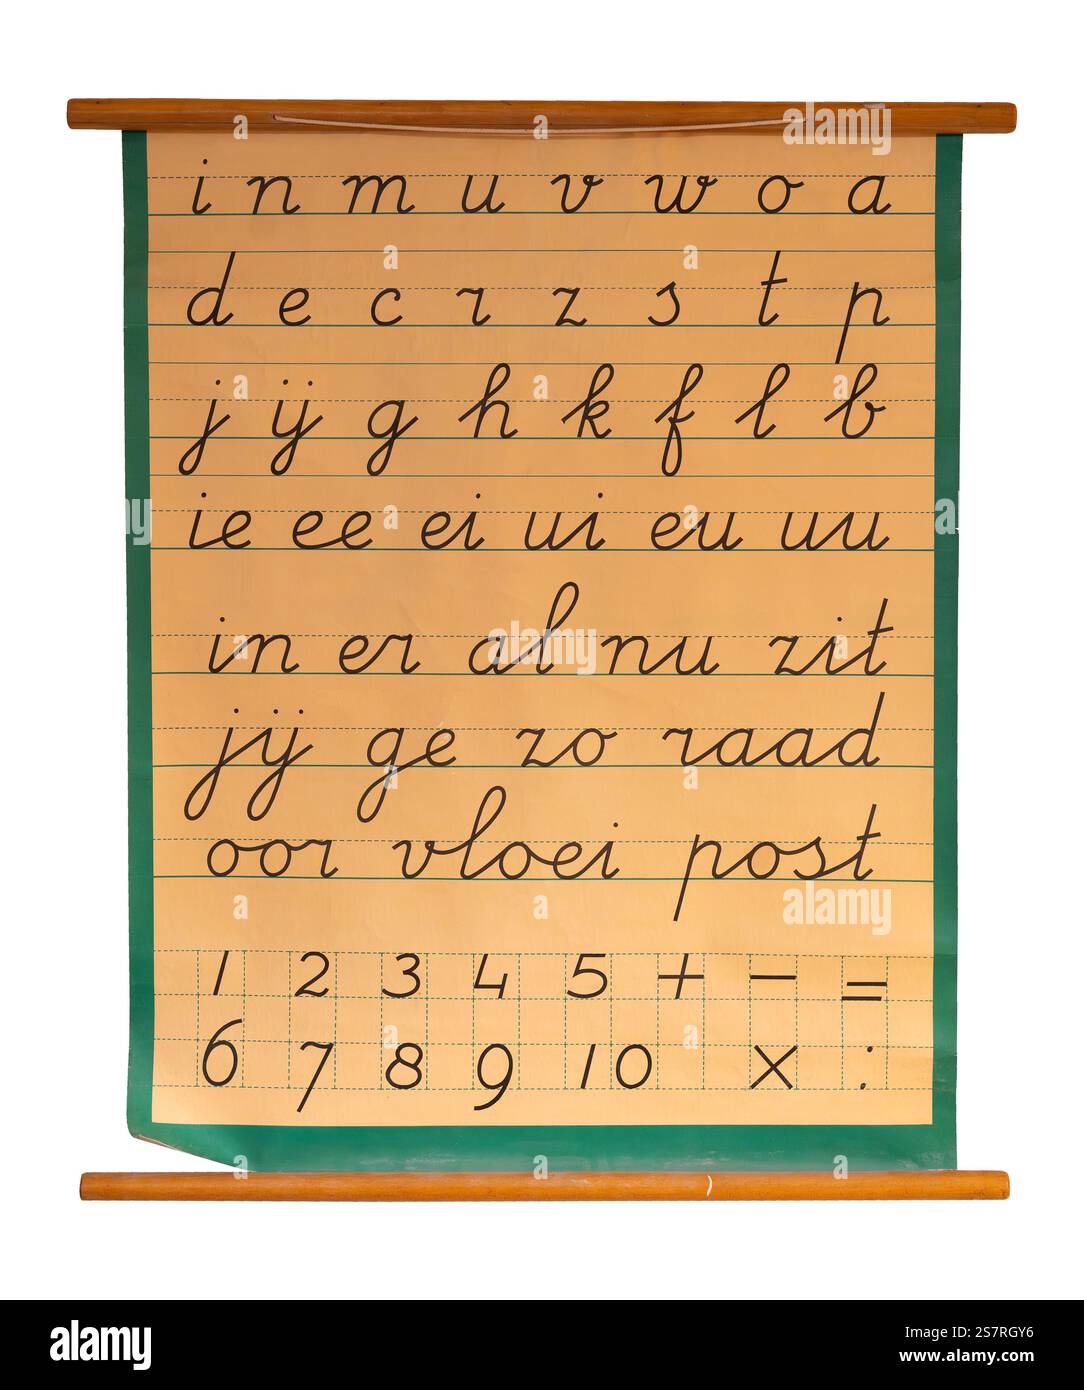 i n m u v w o a
d e c r z s t p
j ij g h k f l b
ie ee ei ui eu uu
in er al nu zit
jij ge zo raad
oor vloei post
1 2 3 4 5 + − =
6 7 8 9 10 × :
alamy
Image ID: 2S7RGY6
www.alamy.com